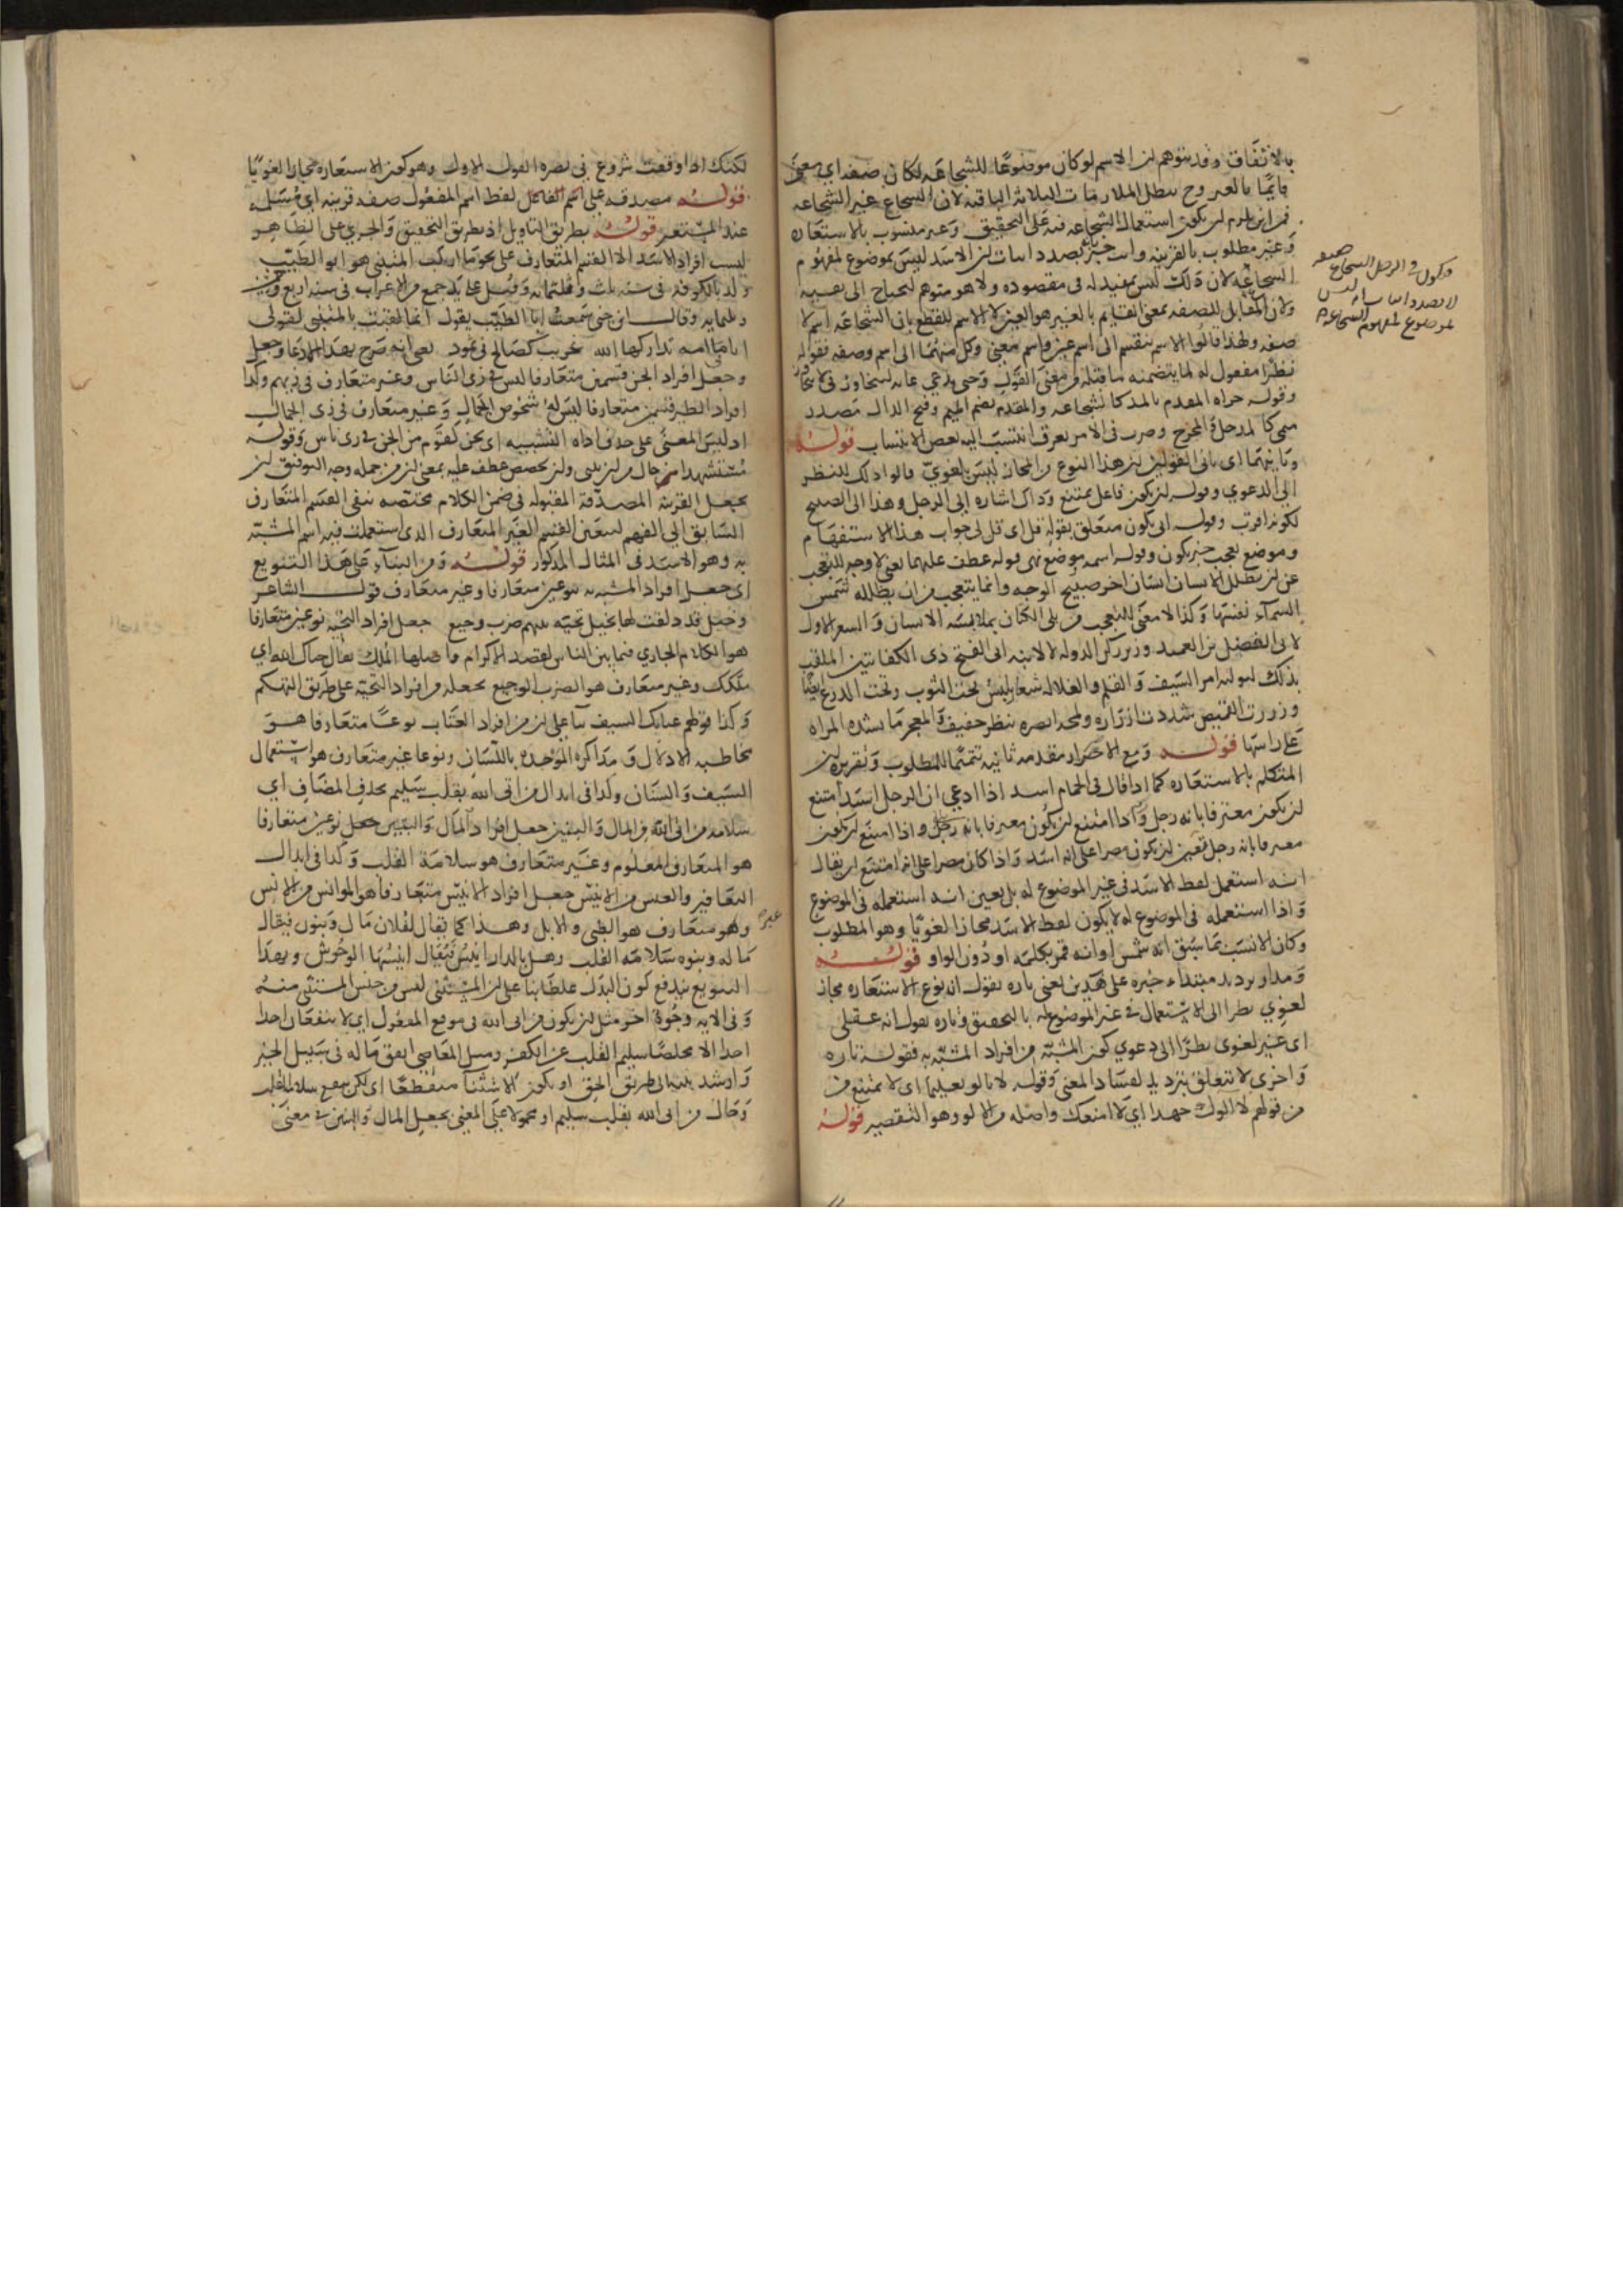 بالاتفاق وقد يتوهم ان الاسم لو كان موضوعا للشجاعه لكان صفه اي معنى
قايما بالغير وح يبطل الملازمات الثلاثة الباقيه لان الشجاع غير الشجاعه
فمن اين يلزم ان يكون استعماله الشجاعه فيه على التحقيق وغير منسوب بالاستعاره
وغير مطلوب بالقرينه وانت خبير بانه بصدد اثبات ان الاسد ليس بموضوع لمفهوم
الشجاعه لان ذلك ليس بمفيد له في مقصوده ولا هو متوهم ليحتاج الى نفيه
ولان المقابل للصفه بمعنى القايم بالغير هو العين لا الاسم للقطع بان الشجاعه اسم لا
صفه ولهذا قالوا الاسم ينقسم الى اسم عين واسم معنى وكل منهما الى اسم وصفه فقوله
نظرا مفعول له لما يتضمنه ما قبله من معنى القول وحتى يدعي
وقوله جراه المقدم بالمد كالشجاعه والمقدم بضم الميم وفتح الدال مصدر
ميمي كالمدخل والمخرج وضرب في الامر بعرق انتسب اليه بعض الانتساب قوله
وثانيهما اي ثاني القولين ان هذا النوع من المجاز ليس بلغوي قالوا وذلك للنظر
الى الدعوي وقوله ان يكون فاعل يمتنع وذاك اشاره الى الرجل وهذا الى الصبيح
لكونه اقرب وقوله اني يكون متعلق بقوله قل اي قل لي جواب هذا الاستفهام
وموضع تعجب خبر يكون وقوله اسمه موضع نهي قوله عطف عليهما يعني لا وجه للتعجب
عن ان يظلل الانسان انسان اخر صبيح الوجه وانما يتعجب من ان يظلله شمس
السماء نفسها وكذا لا معنى للتعجب من بلى الكتان بملابسة الانسان والشعر الاول
لابي الفضل بن العميد وزير ركن الدوله لا لابنه ابي الفتح ذي الكفايتين الملقب
بذلك لتوليه امر السيف والقلم والغلاله شعار يلبس تحت الثوب وتحت الدرع ايضا
وزررت القميص شددت ازراره ولمحه ابصره بنظر خفيف والمعجر ما تشده المراه
على راسها قوله ومع الاصرار مقدمه ثانيه تتميما للمطلوب وتقريره ان
المتكلم بالاستعاره كما اذا قال في الحمام اسد اذا ادعي ان الرجل اسد امتنع
ان يكون معترفا بانه رجل واذا امتنع ان يكون معترفا بانه رجل واذا امتنع ان يكون
معترفا بانه رجل تعين ان يكون مصرا على انه اسد واذا كان مصرا على انه امتنع ان يقال
انه استعمل لفظ الاسد في غير الموضوع له بل تعين انه استعمله في الموضوع
واذا استعمله في الموضوع له لا يكون لفظ الاسد مجازا لغويا وهو المطلوب
وكان الانسب بما سبق انه شمس او انه قمر بكلمه او دون الواو قوله
ومدار ترديد مبتداء خبره على هذين يعني تاره يقول انه نوع الاستعاره مجاز
لغوي نظرا الى الاستعمال في غير الموضوع له بالتحقيق وتاره يقول انه عقلي
اي غير لغوي نظرا الى دعوي كون المشبه من افراد المشبه به فقوله تاره
واخرى لا تتعلق بترديد لفساد المعنى وقوله لا يالو تعليما اي لا يمتنع من
من قولهم لا الوك جهدا اي لا امنعك واصله من الالو وهو التقصير قوله
صفه
وكون في الرجل الشجاع
لا بصدد اثبات انه ليس
بموضوع لمفهوم الشجاعه
لكنك اذا وقفت شروع في نصره القول الاول وهو كون الاستعاره مجازا لغويا
قوله مصدقه على اسم الفاعل لفظ اسم المفعول صفه قرينه اي مسلمه
عند المستعير قوله بطريق التاويل اذ بطريق التحقيق والجري على الظاهر
ليست افراد الاسد الا القسم المتعارف على نحو ما ارتكب المتنبي هو ابو الطيب
ولد بالكوفه في سنه ثلث وثلثمائه وقيل تابعه جمع من الاعراب في سنه اربع وعشرين
وثلثمايه وقال ابن جني سمعت ابا الطيب يقول انما لقبت بالمتنبي لقولي
انا في امه تداركها الله غريب كصالح في ثمود يعني انه صرح بهذا الادعا وجعل
وجعل افراد الجن قسمين متعارفا ليس في زي الناس وغير متعارف في زيهم وكذا
افراد الطير قسمين متعارفا ليس له شخوص الجمال وغير متعارف في زي الجمال
اذ ليس المعنى على حذف اداه التشبيه اي نحن كقوم من الجن في زي ناس وقوله
مستشهدا من حال وان تخصص عطف عليه بمعنى ان من جمله وجه التوفيق ان
يجعل القرينه المصدقة المقبوله في ضمن الكلام مختصه بنفي القسم المتعارف
السابق الى الفهم ليتعين القسم الغير المتعارف الذي استعملت فيه اسم المشبه
به وهو الاسد في المثال المذكور قوله ومن البناء على هذا التنويع
اي جعل افراد المشبه به نوعين متعارفا وغير متعارف قول الشاعر
وخيل قد دلفت لها بخيل تحيه بينهم ضرب وجيع جعل افراد التحيه نوعين متعارفا
هو الكلام الجاري فيما بين الناس لقصد الاكرام واصلها الملك يقال حياك الله اي
ملكك وغير متعارف هو الضرب الوجيع بجعله من افراد التحيه على طريق التهكم
وكذا قولهم عتابك السيف بناء على ان من افراد العتاب نوعا متعارفا هو
مخاطبه الادلال ومذاكره المؤجده باللسان ونوعا غير متعارف هو استعمال
السيف والسنان وكذا في ابدال من اتى الله بقلب سليم بحذف المضاف اي
سلامه من اتى الله من المال والبنين جعل افراد المال والبنين نوعين متعارفا
هو المتعارف المعلوم وغير متعارف هو سلامة القلب وكذا في ابدال
اليعافير والعيس من الانيس جعل افراد الانيس متعارفا هو الموانس من الانس
وهو متعارف هو الظبي والابل وهذا كما يقال لفلان مال وبنون فيقال
غير
ماله وبنوه سلامه القلب وهل بالدار انيس فيقال انيسها الوحوش وبهذا
التنويع يندفع كون البدل غلطا بنا على ان المستثنى ليس من جنس المستثنى منه
وفي الايه وجوه اخر مثل ان يكون من اتى الله في موقع المفعول اي لا ينفعان احدا
احدا الا مخلصا سليم القلب عن الكفر وميل المعاصي انفق ماله في سبيل الخير
وارشد بنيه الى طريق الحق او يكون الاستثنا منقطعا اي لكن ينفع سلامه القلب
وحال من اتى الله بقلب سليم او محمولا على المعنى بجعل المال والبنين في معنى